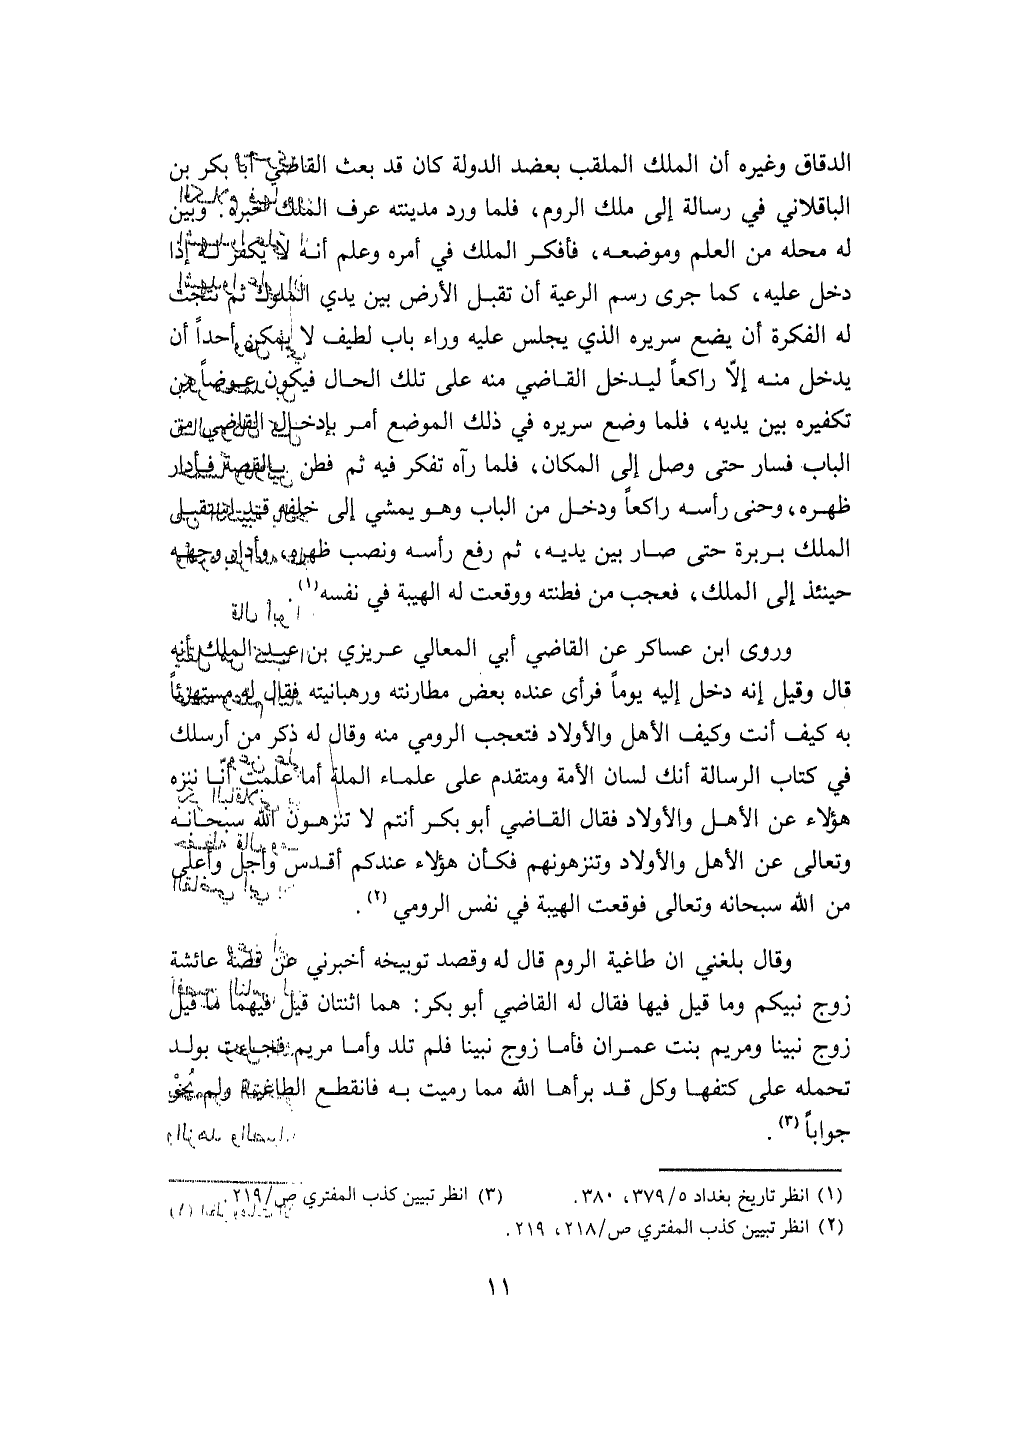 الدقاق وغيره أن الملك الملقب بعضد الدولة كان قد بعث القاضي أبا بكر بن
الباقلاني في رسالة إلى ملك الروم، فلما ورد مدينته عرف الملك خبره. وبين
له محله من العلم وموضعه، فأفكر الملك في أمره وعلم أنه لا يكفر له إذا
دخل عليه، كما جرى رسم الرعية أن تقبل الأرض بين يدي الملوك ثم نتجت
له الفكرة أن يضع سريره الذي يجلس عليه وراء باب لطيف لا يمكن أحداً أن
يدخل منه إلاّ راكعاً ليدخل القاضي منه على تلك الحال فيكون عوضاً من
تكفيره بين يديه، فلما وضع سريره في ذلك الموضع أمر بإدخال القاضي من
الباب فسار حتى وصل إلى المكان، فلما رآه تفكر فيه ثم فطن بالقصة فأدار
ظهره، وحنى رأسه راكعاً ودخل من الباب وهو يمشي إلى خلفه قد استقبل
الملك بربرة حتى صار بين يديه، ثم رفع رأسه ونصب ظهره، وأدار وجهه
حينئذ إلى الملك، فعجب من فطنته ووقعت له الهيبة في نفسه(١).
وروى ابن عساكر عن القاضي أبي المعالي عزيزي بن عبد الملك أنه
قال وقيل إنه دخل إليه يوماً فرأى عنده بعض مطارنته ورهبانيته فقال له مستهزئاً
به كيف أنت وكيف الأهل والأولاد فتعجب الرومي منه وقال له ذكر من أرسلك
في كتاب الرسالة أنك لسان الأمة ومتقدم على علماء الملة أما علمت أنّا ننزه
هؤلاء عن الأهل والأولاد فقال القاضي أبو بكر أنتم لا تنزهون الله سبحانه
وتعالى عن الأهل والأولاد وتنزهونهم فكأن هؤلاء عندكم أقدس وأجل وأعلى
من الله سبحانه وتعالى فوقعت الهيبة في نفس الرومي(٢).
وقال بلغني ان طاغية الروم قال له وقصد توبيخه أخبرني عن قصة عائشة
زوج نبيكم وما قيل فيها فقال له القاضي أبو بكر: هما اثنتان قيل فيهما ما قيل
زوج نبينا ومريم بنت عمران فأما زوج نبينا فلم تلد وأما مريم فجاءت بولد
تحمله على كتفها وكل قد برأها الله مما رميت به فانقطع الطاغية ولم يُحِرْ
جواباً(٣).
(١) انظر تاريخ بغداد ٣٧٩/٥، ٣٨٠.
(٢) انظر تبيين كذب المفتري ص/٢١٨، ٢١٩.
(٣) انظر تبيين كذب المفتري ص/٢١٩.
١١